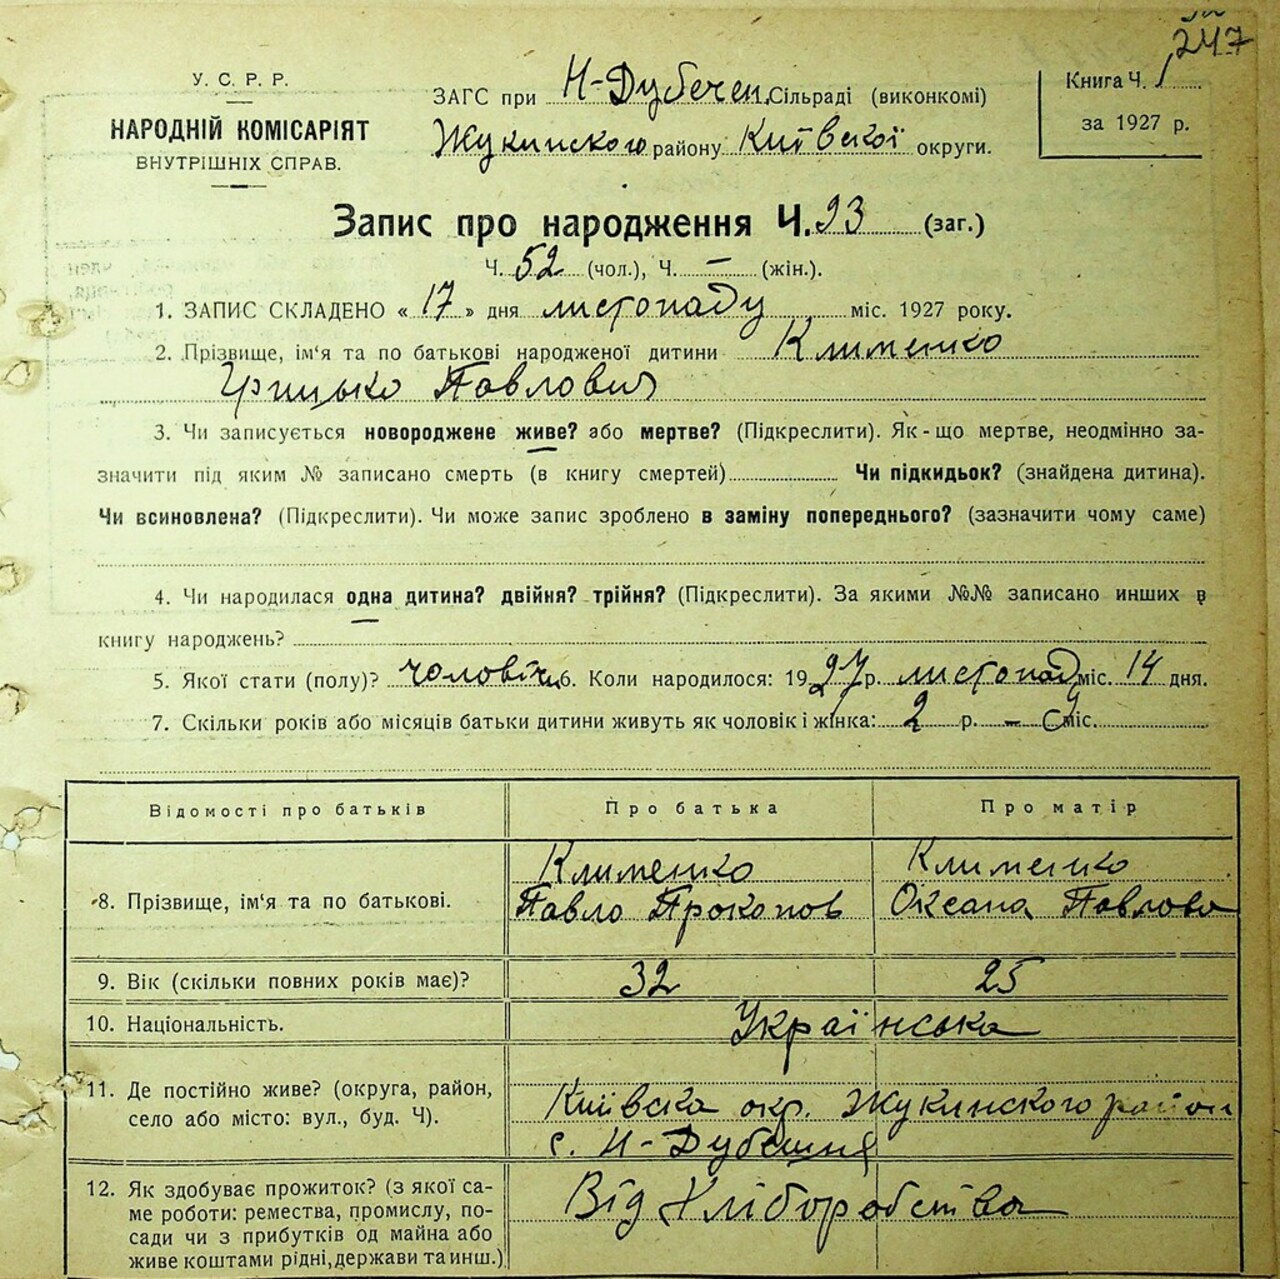 247
У. С. Р. Р.
НАРОДНІЙ КОМІСАРІЯТ
ВНУТРІШНІХ СПРАВ.
ЗАГС при Н-Дубечен. Сільраді (виконкомі)
Жукинского району Київскої округи.
Книга Ч. 1
за 1927 р.
Запис про народження Ч. 93 (заг.)
Ч. 52 (чол.), Ч. — (жін.).
1. ЗАПИС СКЛАДЕНО « 17 » дня листопаду міс. 1927 року.
2. Прізвище, ім'я та по батькові народженої дитини Клименко
Грицько Павлович
3. Чи записується новороджене живе? або мертве? (Підкреслити). Як-що мертве, неодмінно за-
значити під яким № записано смерть (в книгу смертей) Чи підкидьок? (знайдена дитина).
Чи всиновлена? (Підкреслити). Чи може запис зроблено в заміну попереднього? (зазначити чому саме)
4. Чи народилася одна дитина? двійня? трійня? (Підкреслити). За якими №№ записано инших в
книгу народжень?
5. Якої стати (полу)? чоловіч. 6. Коли народилося: 1927 р. листопад міс. 14 дня.
7. Скільки років або місяців батьки дитини живуть як чоловік і жінка: 2 р. — міс.
Відомості про батьків Про батька Про матір
8. Прізвище, ім'я та по батькові. Клименко Павло Прокопов Клименко Оксана Павлова
9. Вік (скільки повних років має)? 32 25
10. Національність. Українська
11. Де постійно живе? (округа, район,
село або місто: вул., буд. Ч). Київска окр. Жукинского район
с. Н-Дубечня
12. Як здобуває прожиток? (з якої са-
ме роботи: ремества, промислу, по-
сади чи з прибутків од майна або
живе коштами рідні, держави та инш.) Від Хліборобства